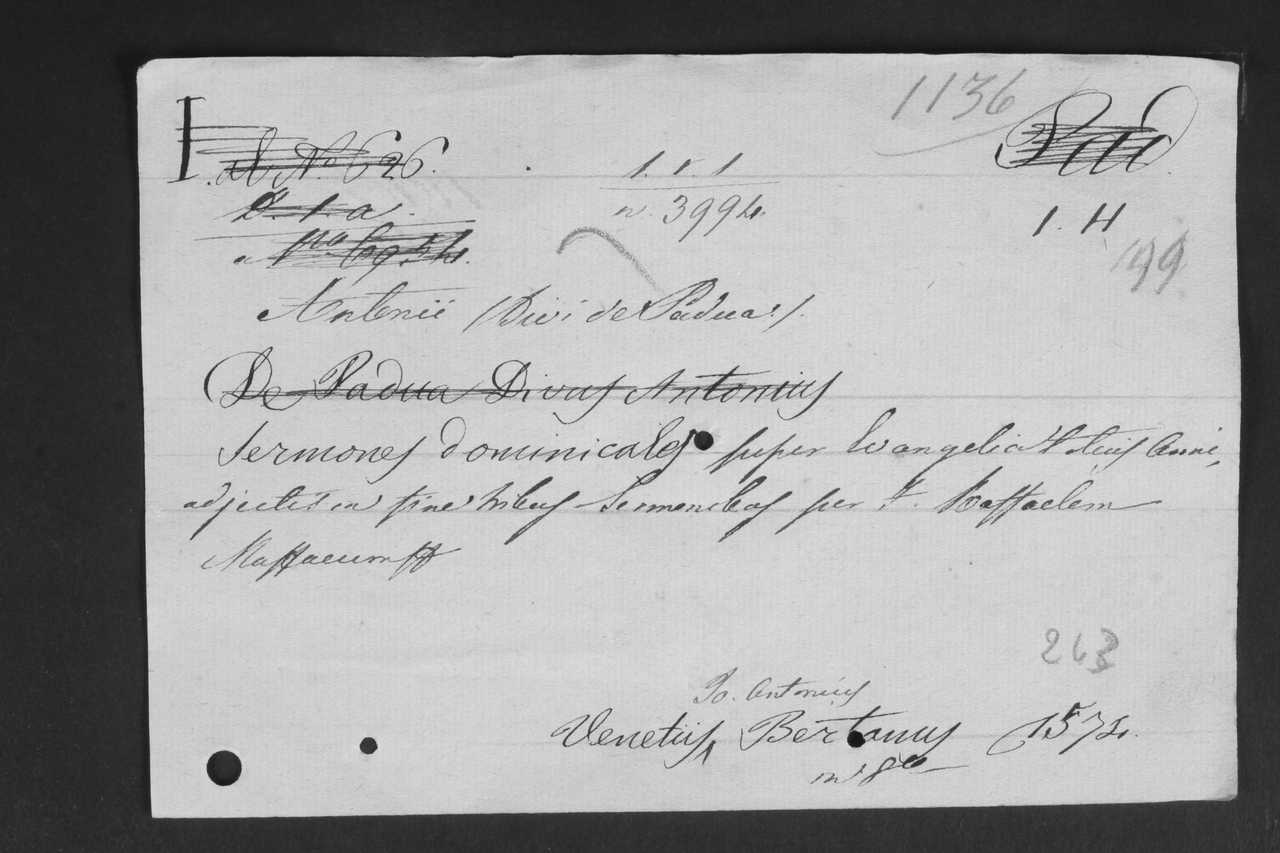 1136
ab No 626.
1. r. 1
D. 1. a.
n. 3994.
1. H
199
Antonii (Divi de Padua:).
De Padua Divus Antonius
Sermones dominicales super Evangelia totius Anni,
adjectis in fine tribus Sermonibus per F. Raffaelem
Maffaeum
263
Jo. Antonius
Venetiis, Bertanus 1574.
in 8vo